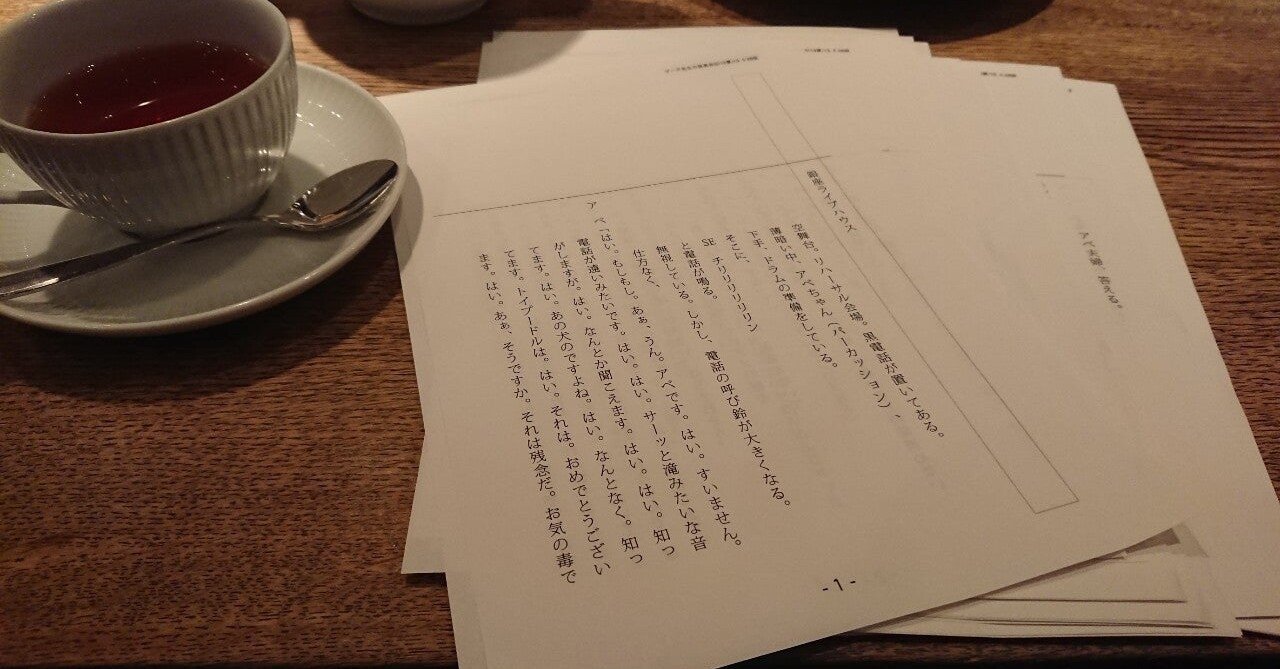 銀座ライブハウス
空舞台。リハーサル会場。黒電話が置いてある。
薄暗い中、アベちゃん（パーカッション）、
下手、ドラムの準備をしている。
そこに、
SE　チリリリリリン
と電話が鳴る。
無視している。しかし、電話の呼び鈴が大きくなる。
仕方なく、
アベ「はい。もしもし。あぁ、うん。アベです。はい。すいません。
電話が遠いみたいです。はい。はい。サーッと滝みたいな音
がしますが。はい。なんとか聞こえます。はい。はい。知っ
てます。はい。あの犬のですよね。はい。なんとなく。知っ
てます。トイプードルは。はい。それは。おめでとうござい
ます。はい。あぁ、そうですか。それは残念だ。お気の毒で
-1-
アベ夫婦、答える。